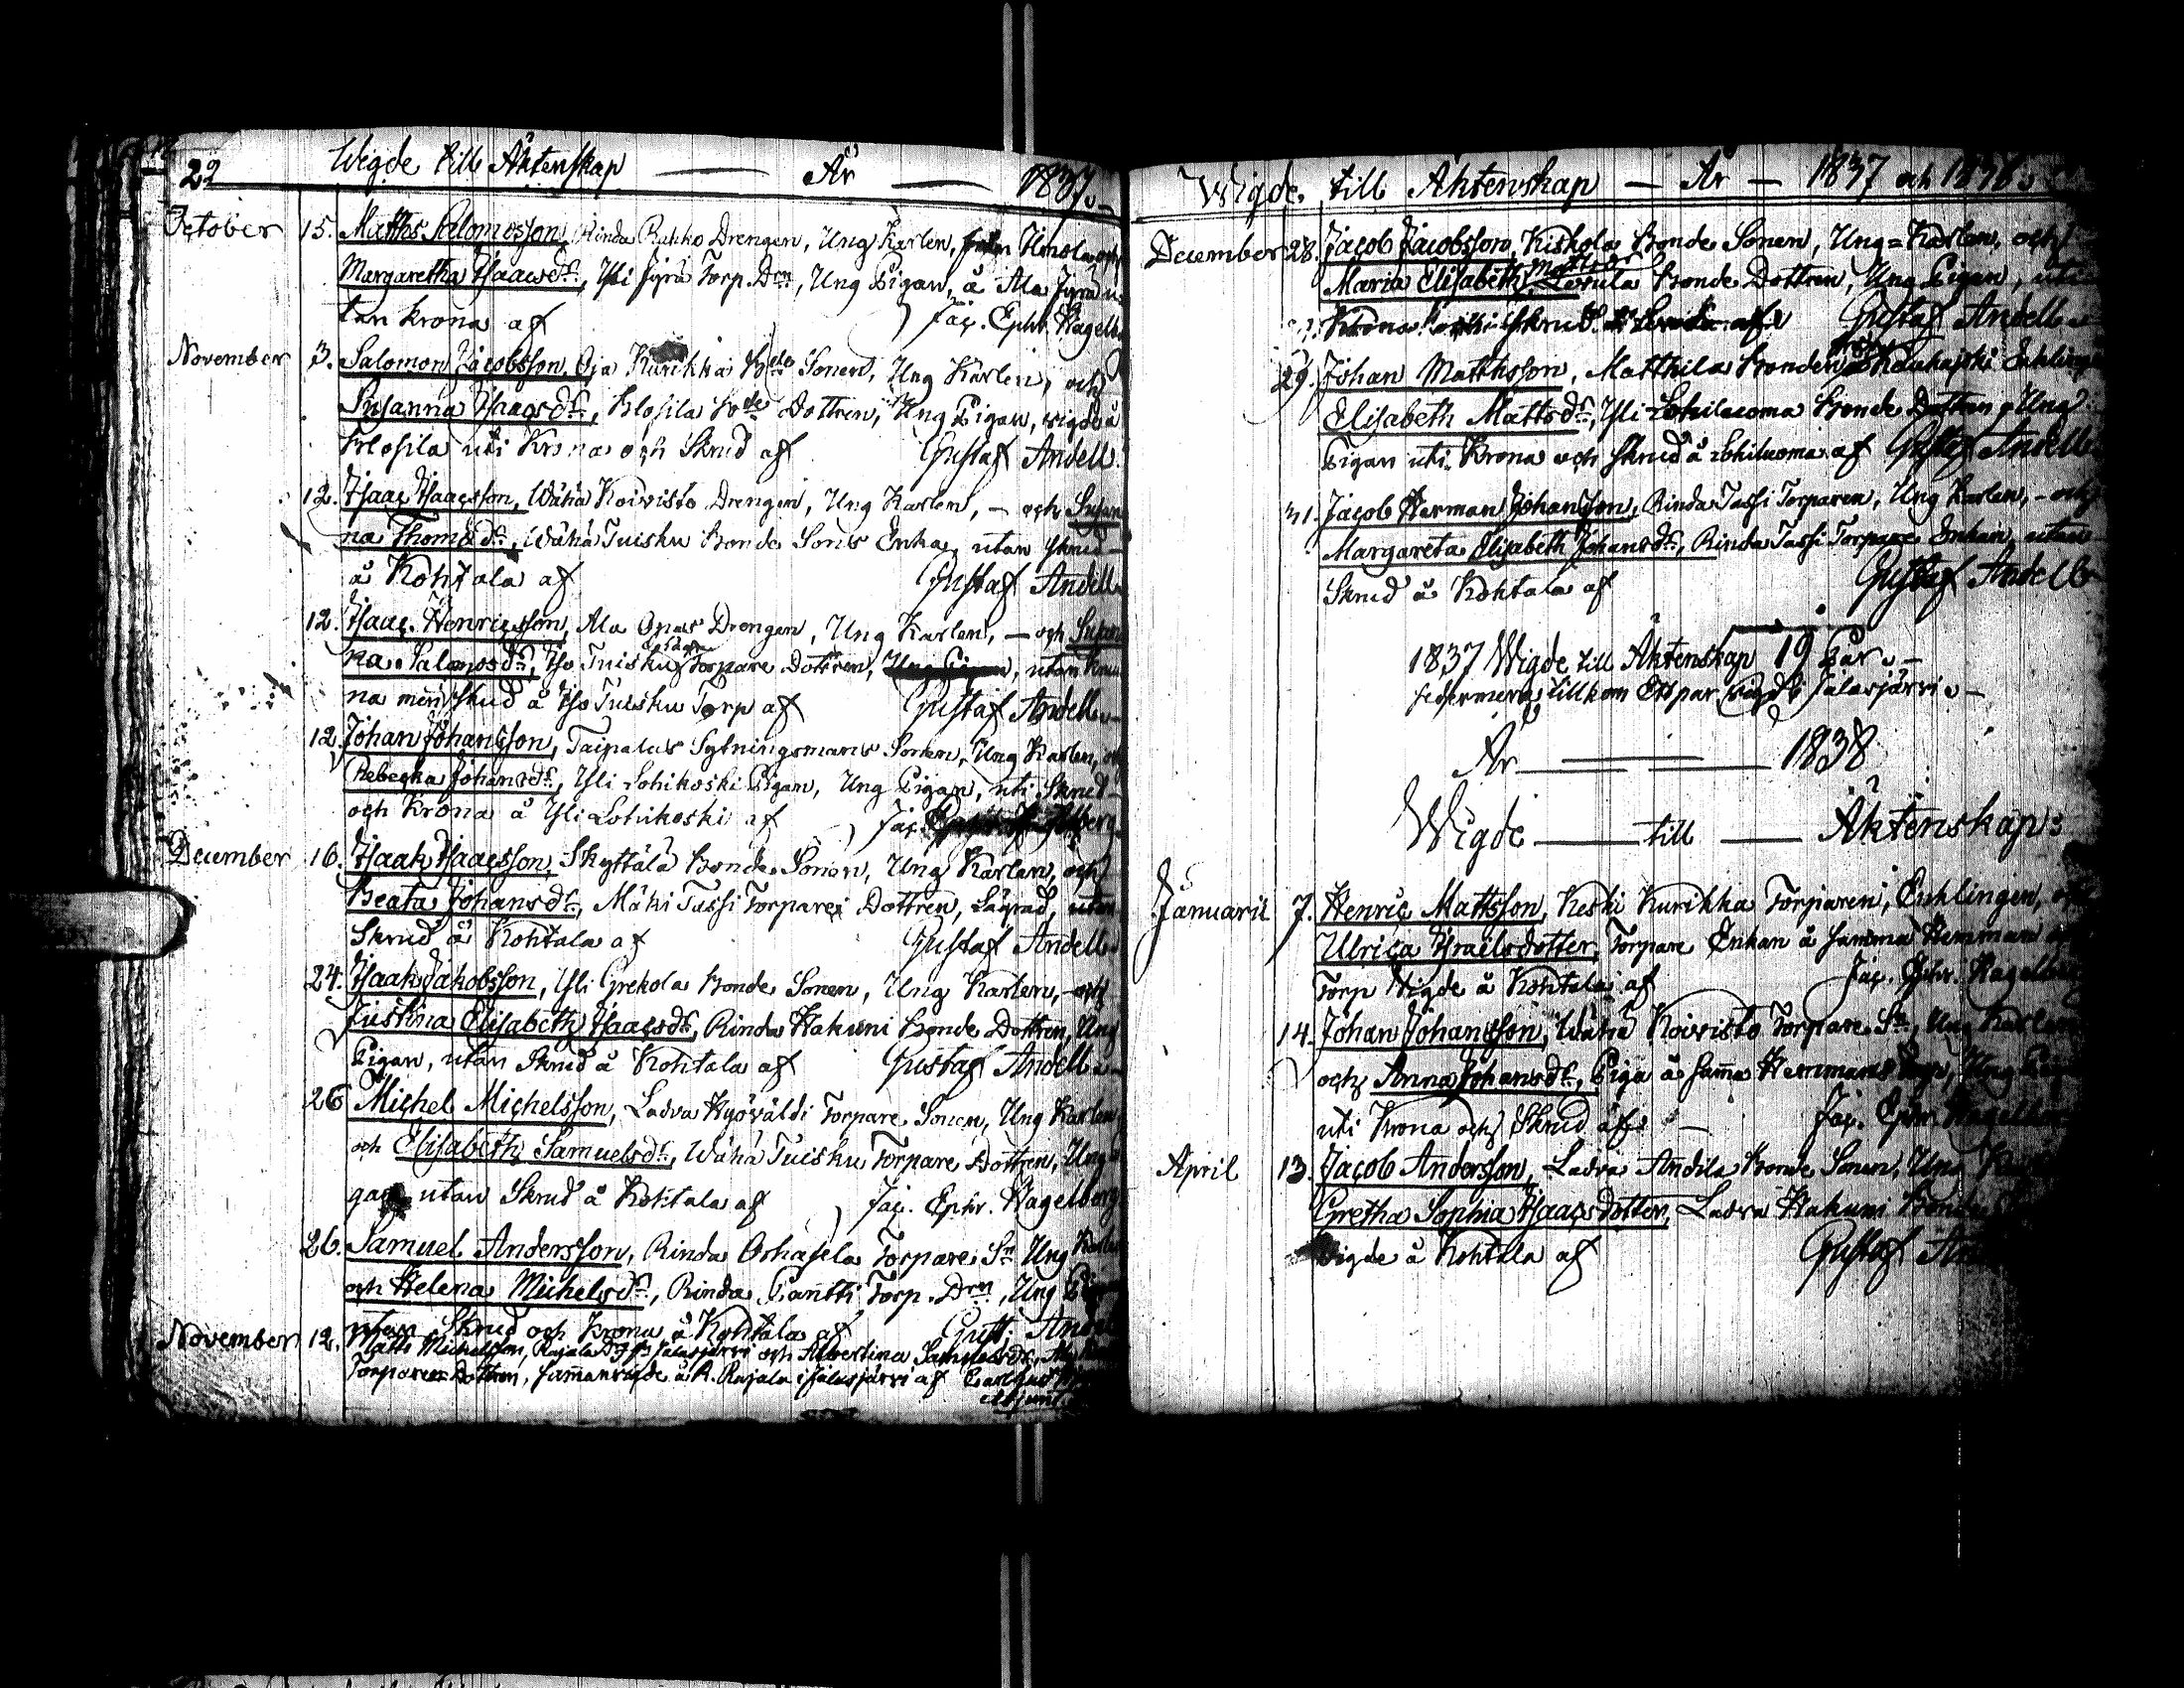 22 Wigde till Äktenskap — År — 1837.
October 15. Matths Salomosson, Rinda Rahko Drengen, Ung Karlen, från Ilmola och
Margaretha Isaacsdr, Yli Jyrä Torp. Drn, Ung Pigan, å Ala Jyrä u-
tan krona af Jac. Ephr. Hagelb
November 3. Salomon Jacobsson, Oja Kurikka Bde Sonen, Ung Karlen, och
Susanna Isaacsdr, Klosila Bde Dottren, Ung Pigan, wigde å
Klosila uti Krona och Skrud af Gustaf Andell.
12. Isaac Isaacsson, Wähä Koivisto Drengen, Ung Karlen, — och Susan
na Thomsdr, Wähä Tuisku Bonde Sons Enka, utan Skrud
å Kohtala af Gustaf Andell
12. Isaac Henricsson, Ala Drengen, Ung Karlen, — och Susan
na Salomosdr, Iso Tuisku Torpare Dottren, Ung Pigan, utan kro
na men skrud å Iso Tuisku Torp af Gustaf Andell
12. Johan Johansson, Taipalus Sytningsmans Sonen, Ung Karlen, och
Rebecka Johansdr, Yli Lohikoski Pigan, Ung Pigan, uti Skrud
och Krona å Yli Lohikoski af Jac.
December 16. Isaak Isaacsson, Skyttälä Bonde Sonen, Ung Karlen, och
Beata Johansdr, Mäki Tassi Torpare Dottren, Lägrad, utan
Skrud å Kohtala af Gustaf Andell
24. Isaak Jakobsson, Yli Grekola Bonde Sonen, Ung Karlen, — och
Justina Elisabeth Isaacsdr, Rinda Hakuni Bonde Dottren, Ung
Pigan, utan Skrud å Kohtala af Gustaf Andell
26 Michel Michelsson, Ladva Hyöväldi Torpare Sonen, Ung Karlen
och Elisabeth Samuelsdr, Wähä Tuisku Torpare Dottren, Ung
gan utan Skrud å Kohtala af Jac. Ephr. Hagelberg
26. Samuel Andersson, Rinda Torpare Sn Ung Karlen
och Helena Michelsdr, Rinda Pantti Torp. Drn, Ung Pigan
utan Skrud och Krona å Kohtala af Gust. Andell
November 12. Matts Michelsson, Rajala från Jalasjärvi och Albertina Samuelsdr,
Torpare Dottren, samanvigde å R. Rajala i Jalasjärvi af
Wigde till Äktenskap — År — 1837 och 1838.
December 28. Jacob Jacobsson, Kiskola Bonde Sonen, Ung=Karlen, och
Maria Elisabeth Mattsdr Bonde Dottren, Ung Pigan, uti
Krona Skrud Gustaf Andell
29. Johan Matthsson, Matthila Bonden Enklingen
Elisabeth Mattsdr, Yli Lohiluoma Bonde Dottren, Ung
Pigan uti Krona och Skrud å Lohiluoma af Gustaf Andell
31. Jacob Herman Johansson, Rinda Tassi Torparen, Ung Karlen, — och
Margareta Elisabeth Johansdr, Rinda Tassi Torpare Enkan, utan
Skrud å Kohtala af Gustaf Andell
1837 Wigde till Äktenskap 19 Par. —
sedermera tillkom Ett par, vigd i Jalasjärvi. —
År — 1838
Wigde — till — Äktenskap:
Januarii 7. Henric Mattsson, Keski Kurikka Torparen, Enklingen,
Ulrica Israelsdotter, Torpare Enkan å samma Hemman
Torp Wigde å Kohtala af Jac. Ephr. Hagelberg
14. Johan Johansson, Wähä Koivisto Torpare Sn, Ung Karlen
och Anna Johansdr, Piga å sama Hemmans Torp, Ung Pigan
uti Krona och Skrud af Jac. Ephr. Hagelberg
April 13. Jacob Andersson, Ladva Andila Bonde Sonen, Ung
Gretha Sophia Isaacsdotter, Ladva Hakuni Bonde
Wigde å Kohtala af Gustaf